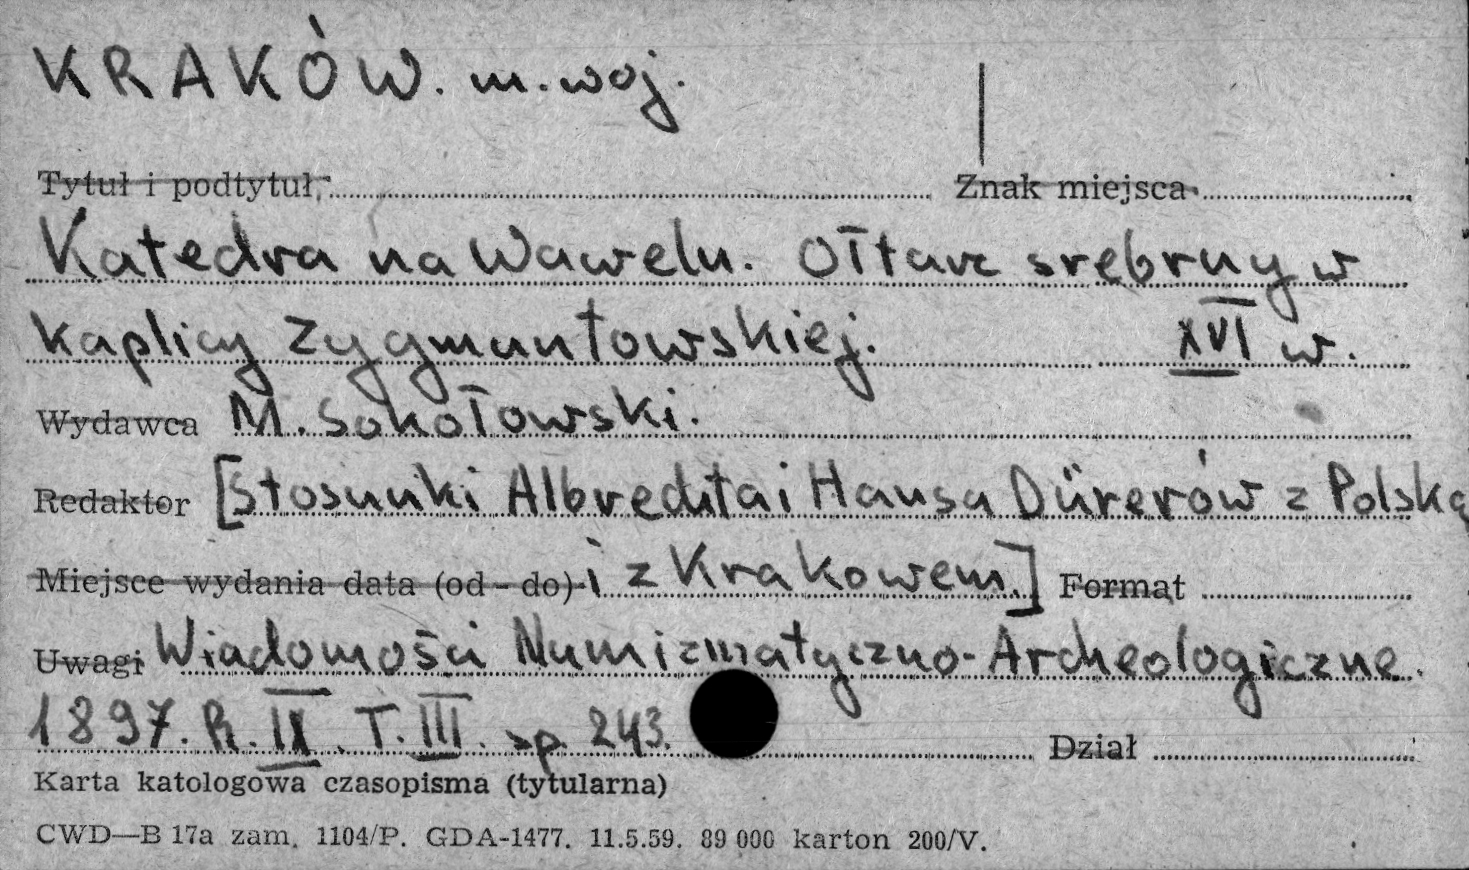 KRAKÓW. m. woj.
Tytuł i podtytuł, Znak miejsca
Katedra na Wawelu. Ołtarz srebrny w
kaplicy Zygmuntowskiej. XVI w.
Wydawca M. Sokołowski.
Redaktor [Stosunki Albrechta i Hansa Dürerów z Polską
Miejsce wydania data (od - do) i z Krakowem.] Format
Uwagi Wiadomości Numizmatyczno-Archeologiczne.
1897. R. IX. T. III. sp. 243. Dział
Karta katologowa czasopisma (tytularna)
CWD—B 17a zam. 1104/P. GDA-1477. 11.5.59. 89 000 karton 200/V.